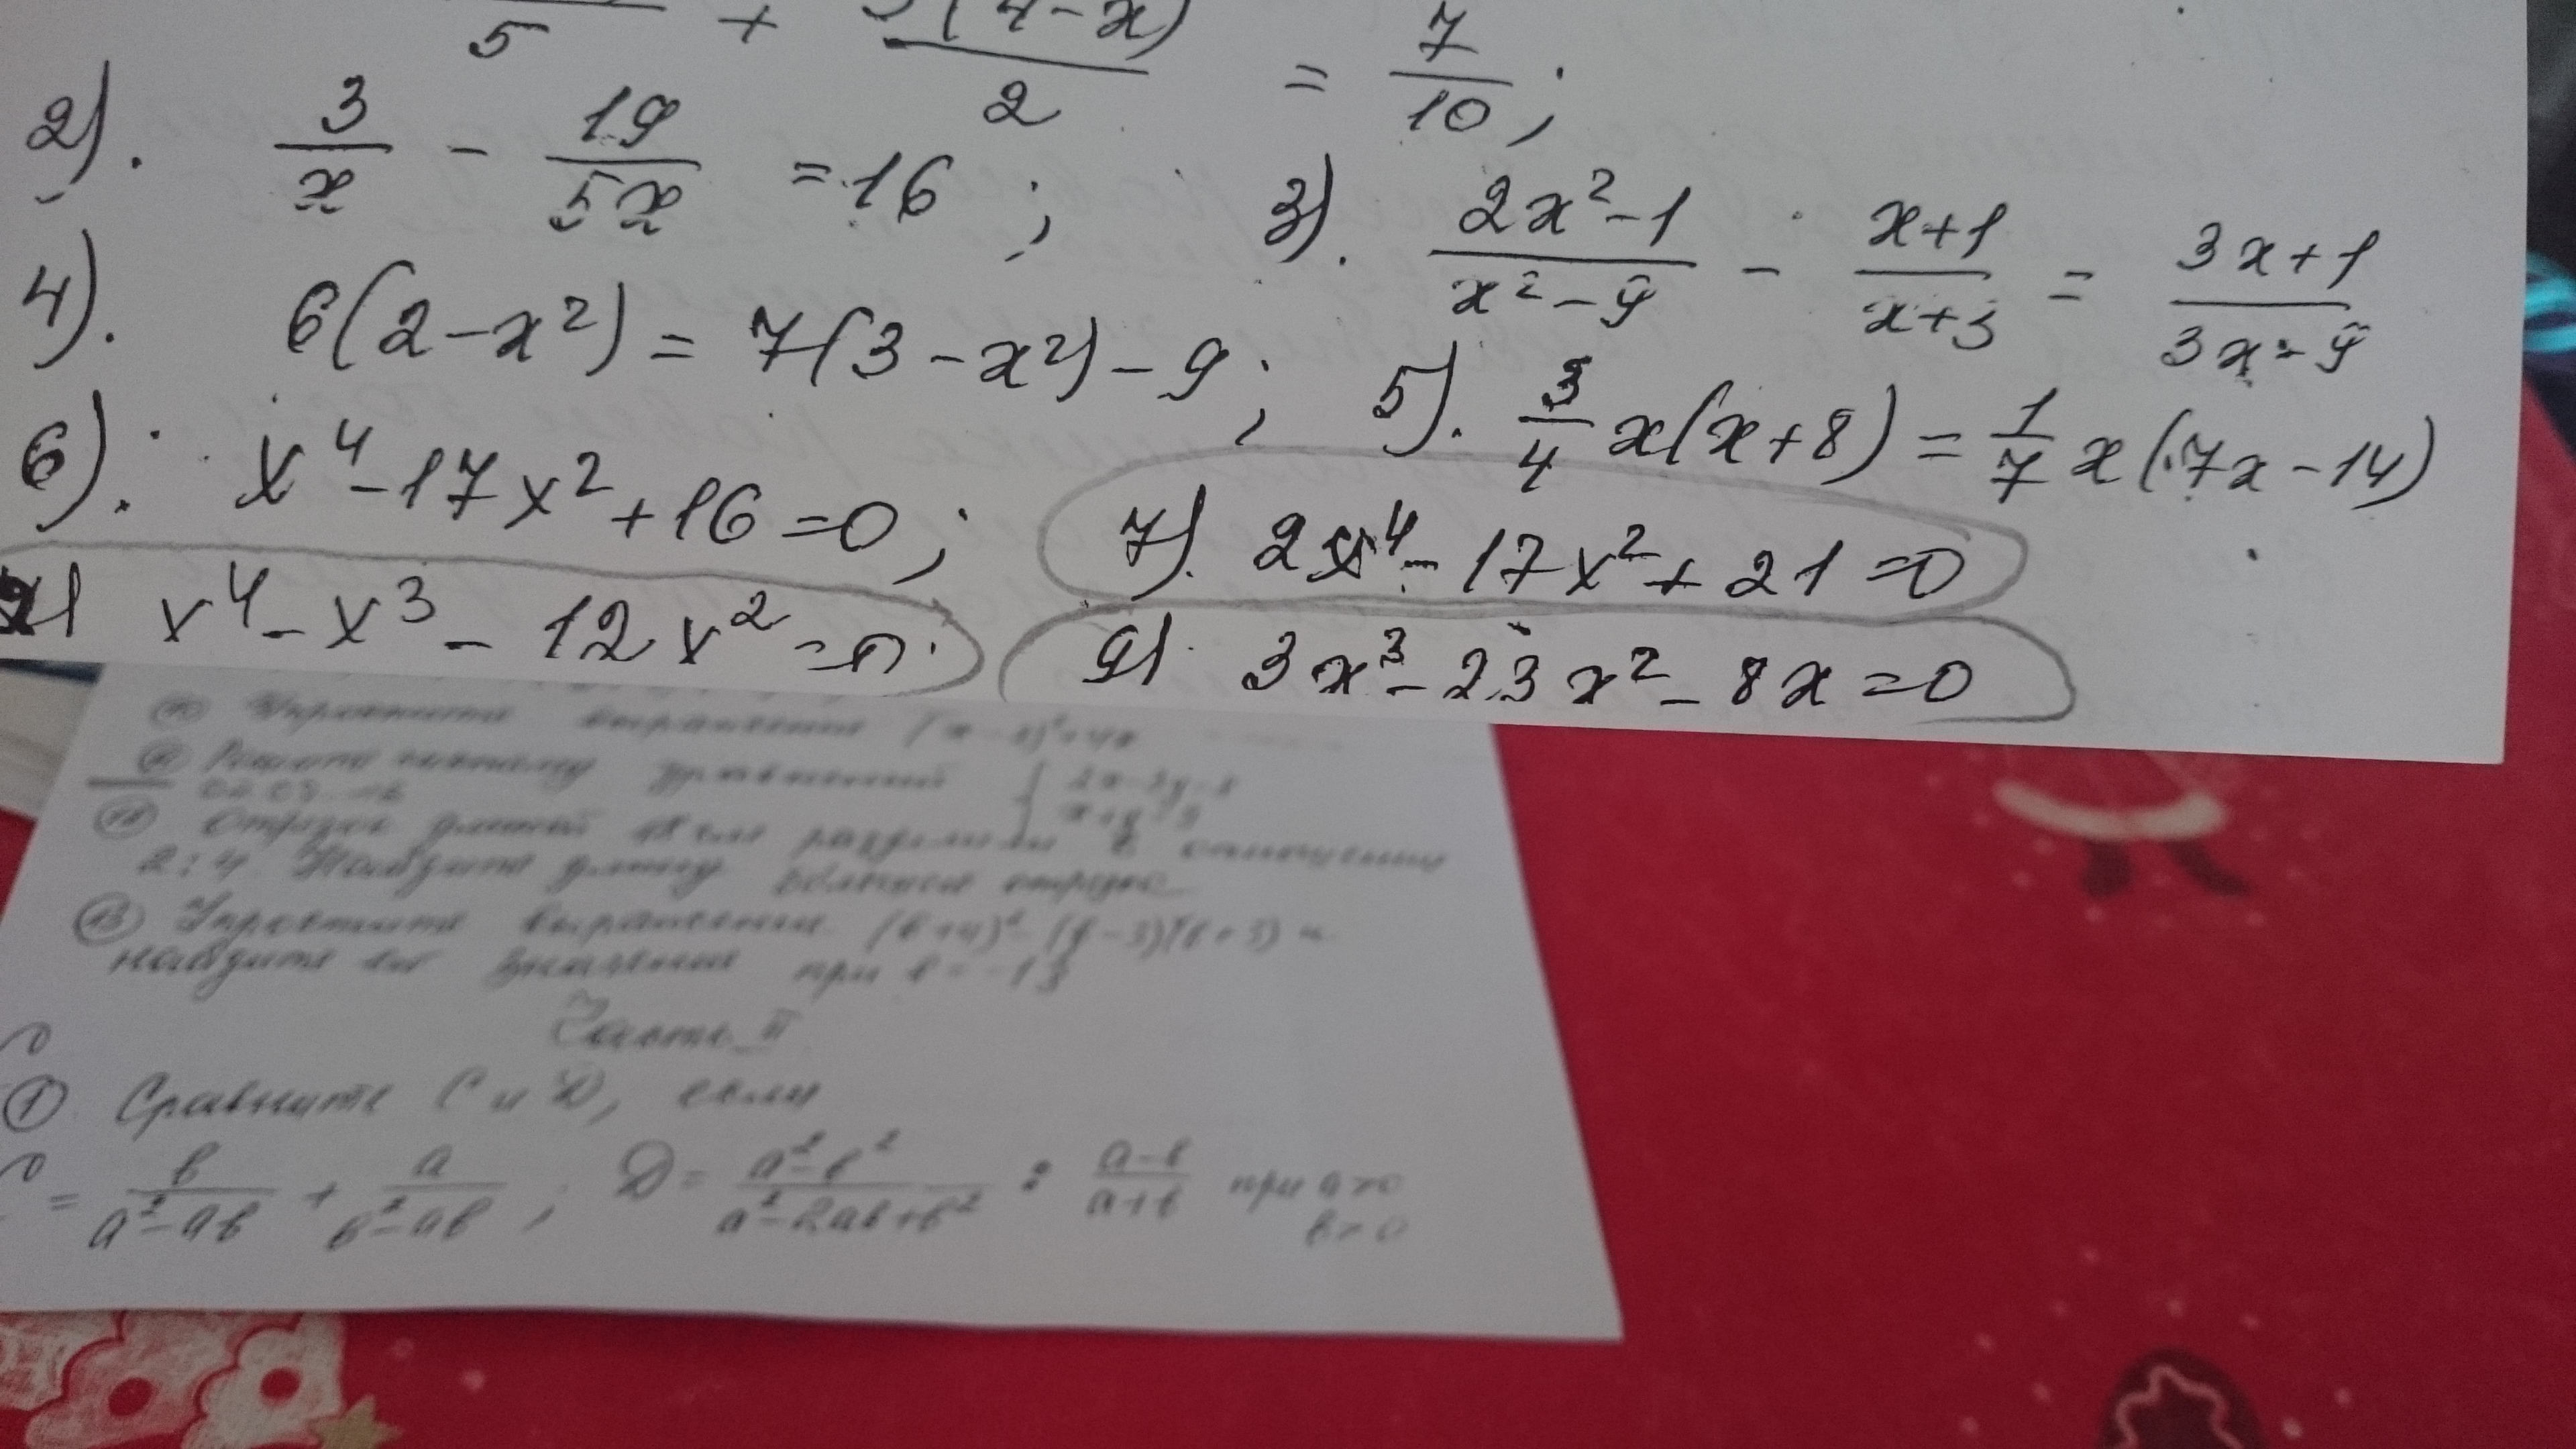 5 + (4-x)/2 = 7/10;
2). 3/x - 19/5x = 16; 3). 2x²-1/x²-9 - x+1/x+3 = 3x+1/3x-9
4). 6(2-x²) = 7(3-x²)-9; 5). 3/4 x(x+8) = 1/7 x(7x-14)
6). x⁴-17x²+16=0; 7). 2x⁴-17x²+21=0
x⁴-x³-12x²=0. 9). 3x³-23x²-8x=0
Упростите выражение
Решите систему уравнений
Отрезок длиной разделили в отношении
2:4. Найдите длину большего отрезка
13 Упростите выражение и
найдите его значение при в = -13
Часть II
1 Сравните C и D, если
C = в/a²-ав + a/в²-ав; D = a²-в²/a²-2ав+в² : a-в/a+в при a>0
в>0